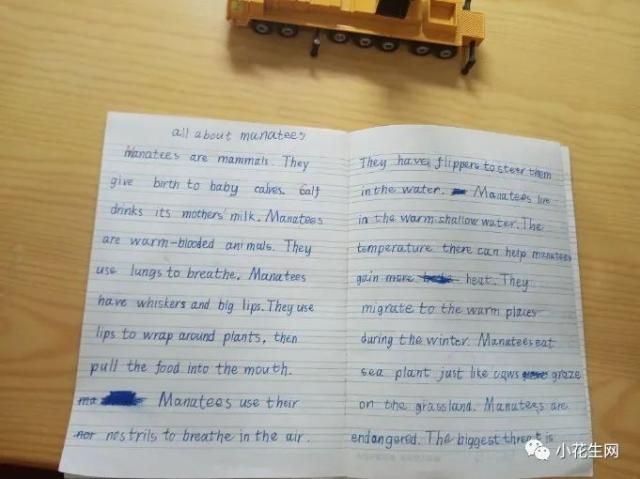 all about manatees
Manatees are mammals. They
give birth to baby calves. Calf
drinks its mothers' milk. Manatees
are warm-blooded animals. They
use lungs to breathe. Manatees
have whiskers and big lips. They use
lips to wrap around plants, then
pull the food into the mouth.
ma Manatees use their
nor nostrils to breathe in the air.
They have flippers to steer them
in the water. Manatees live
in the warm shallow water. The
temperature there can help manatees
gain more heat. They
migrate to the warm places
during the winter. Manatees eat
sea plant just like cows graze
on the grassland. Manatees are
endangered. The biggest threat is
小花生网